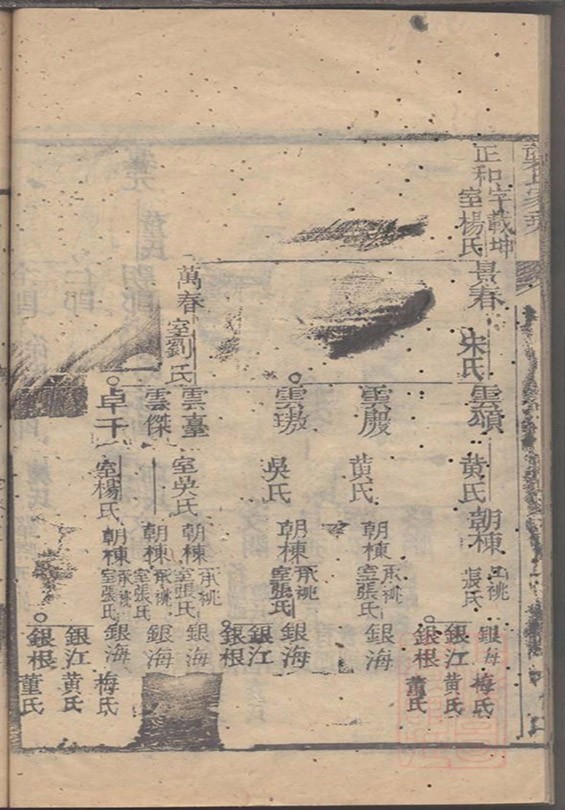 正和字載坤
室楊氏
景春
朱氏
雲頌
黃氏
朝棟
承祧
張氏
銀海
梅氏
銀江
黃氏
銀根
董氏
雲殿
黃氏
朝棟
承祧
室張氏
銀海
雲璈
吳氏
朝棟
承祧
室張氏
銀海
銀江
銀根
萬春
室劉氏
雲臺
室吳氏
朝棟
承祧
室張氏
銀海
雲傑
朝棟
承祧
室張氏
銀海
卓干
室楊氏
朝棟
承祧
室張氏
銀海
梅氏
銀江
黃氏
銀根
董氏